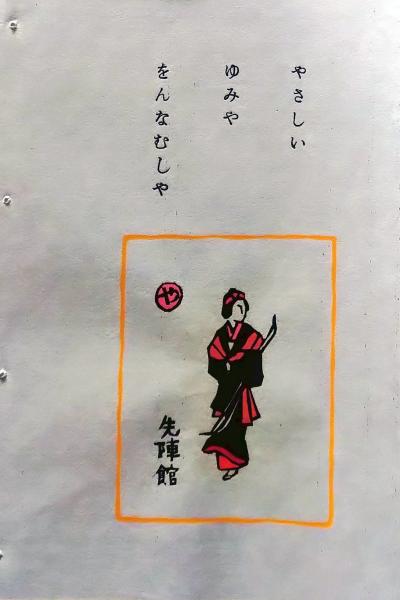 やさしい
ゆみや
をんなむしや
や
先陣館